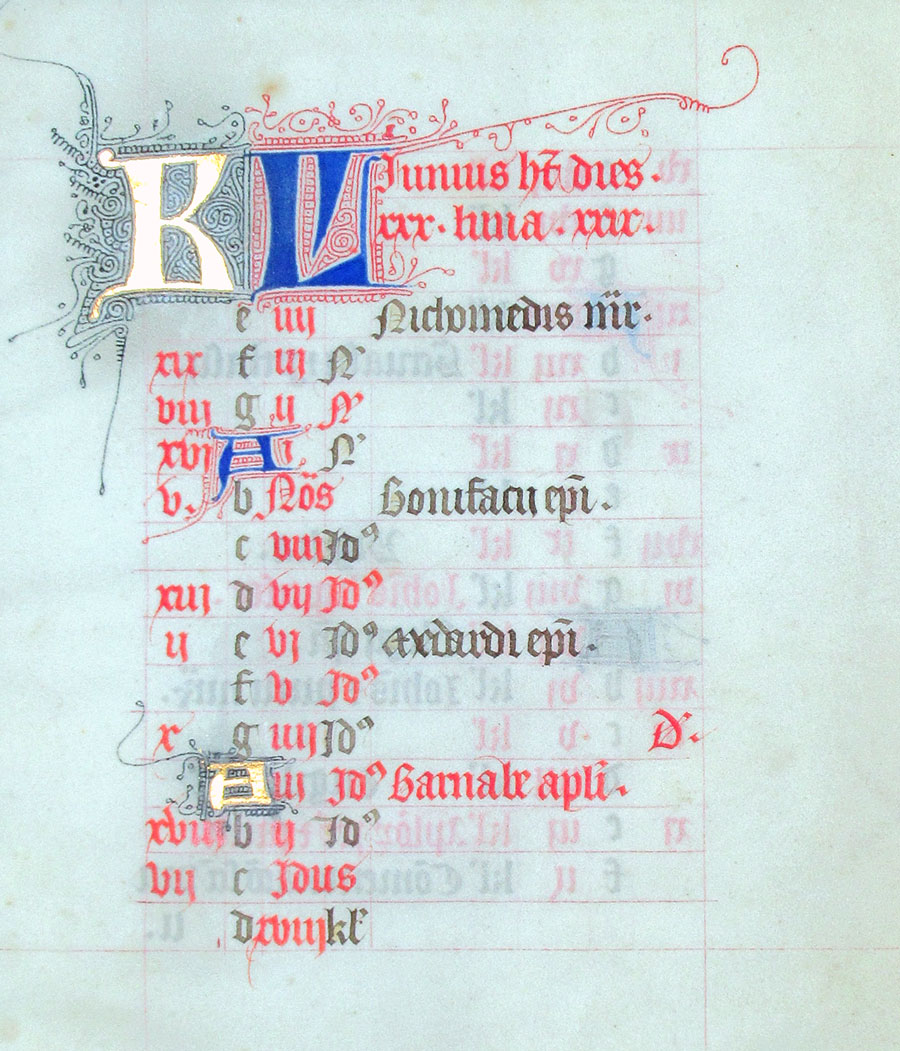 KL Junius ht̄ dies.
xxx. luna. xxix.
e iiij Nichomedis m̄r.
xix f iij N
viij g ij N
xvj A i N
v. b Nōs Bonifacii ep̄i.
c viij Idꝰ
xiij d vij Idꝰ
ij e vj Idꝰ Medardi ep̄i.
f v Idꝰ
x g iiij Idꝰ D.
A iij Idꝰ Barnabe apl̄i.
xviij b ij Idꝰ
vij c Idus
d xviij kl̄